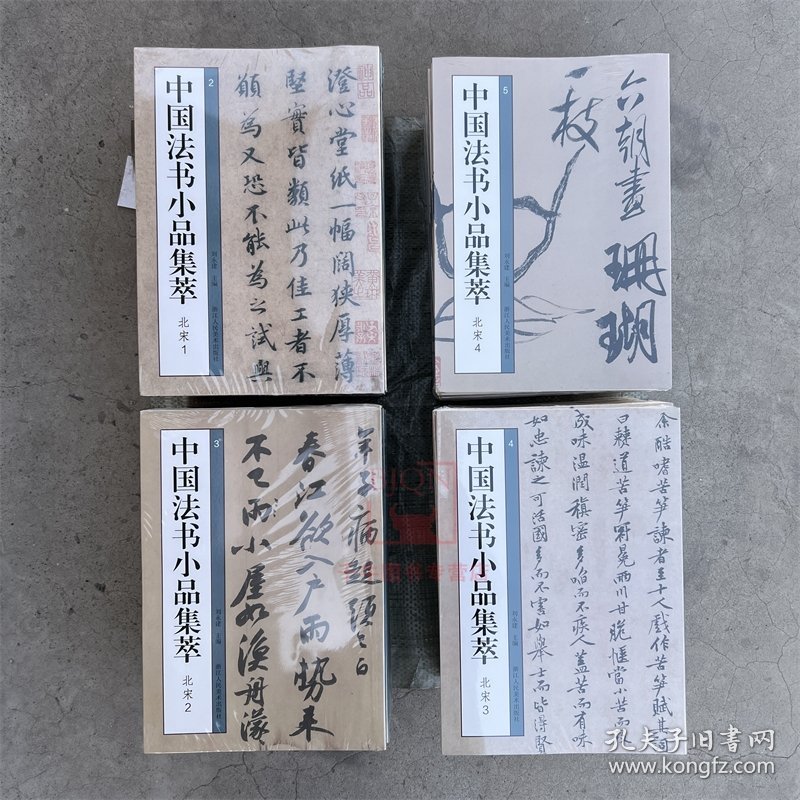 2
中国法书小品集萃
北宋1
刘永建 主编
浙江人民美术出版社
澄心堂纸一幅阔狭厚薄
坚實皆類此乃佳工者不
願為又恐不能為之試與
5
中国法书小品集萃
北宋4
刘永建 主编
浙江人民美术出版社
六朝畫
珊瑚
一枝
3
中国法书小品集萃
北宋2
刘永建 主编
浙江人民美术出版社
年子病起須已白
春江欲入户雨勢来
不已雨小屋如漁舟濛
4
中国法书小品集萃
北宋3
刘永建 主编
浙江人民美术出版社
余酷嗜苦笋諫者至十人戲作苦笋賦其詞
曰僰道苦笋冠冕两川甘脆愜當小苦而
成味温潤稹密多啗而不疾人盖苦而有味
如忠諫之可活國多而不害如舉士而皆得賢
孔夫子旧书网
www.kongfz.com